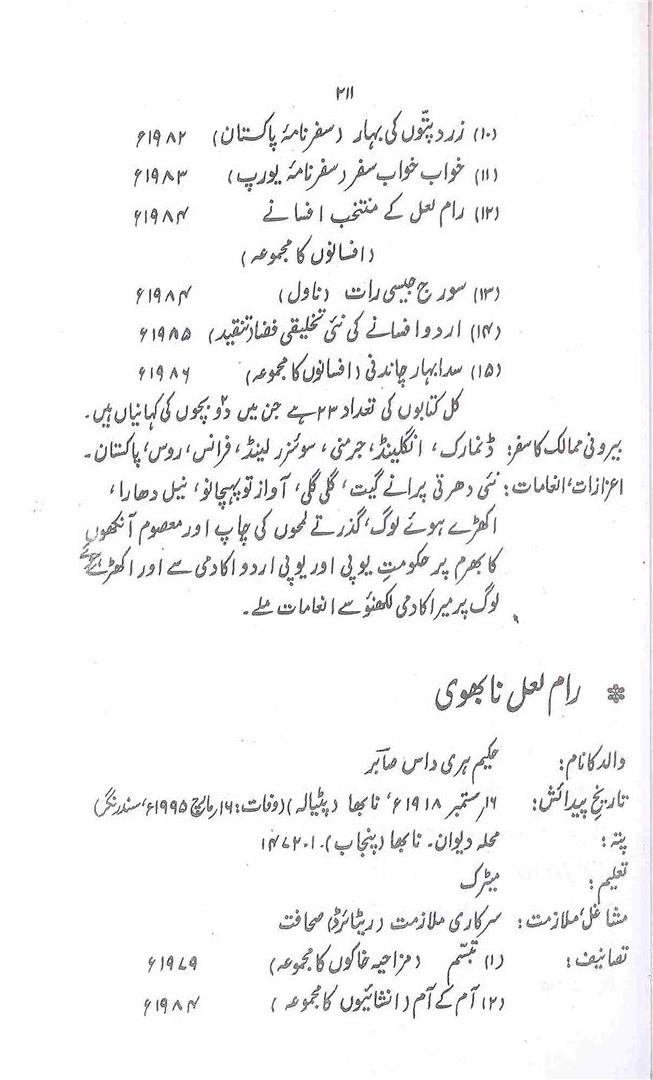 ۲۱۱
(۱۰) زرد پتّوں کی بہار (سفر نامۂ پاکستان) ۱۹۸۲ء
(۱۱) خواب خواب سفر (سفر نامۂ یورپ) ۱۹۸۳ء
(۱۲) رام لعل کے منتخب افسانے ۱۹۸۴ء
(افسانوں کا مجموعہ)
(۱۳) سورج جیسی رات (ناول) ۱۹۸۴ء
(۱۴) اردو افسانے کی نئی تخلیقی فضا (تنقید) ۱۹۸۵ء
(۱۵) سدا بہار چاندنی (افسانوں کا مجموعہ) ۱۹۸۶ء
کل کتابوں کی تعداد ۲۳ ہے جن میں دو بچوں کی کہانیاں ہیں۔
بیرونی ممالک کا سفر: ڈنمارک، انگلینڈ، جرمنی، سوئزر لینڈ، فرانس، روس، پاکستان۔
اعزازات، انعامات: نئی دھرتی پرانے گیت، گلی گلی، آواز تو پہچانو، نیل دھارا،
اکھڑے ہوئے لوگ، گذرتے لمحوں کی چاپ اور معصوم آنکھوں
کا بھرم پر حکومتِ یو پی اور یو پی اردو اکادمی سے اور اکھڑے ہوئے
لوگ پر میر اکادمی لکھنؤ سے انعامات ملے۔
رام لعل نابھوی
والد کا نام: حکیم ہری داس صابر
تاریخ پیدائش: ۱۶؍ستمبر ۱۹۱۸ء، نابھا (پٹیالہ) (وفات: ۱۶؍مارچ ۱۹۹۵ء، سندر نگر)
پتہ: محلہ دیوان۔ نابھا (پنجاب)۔ ۱۴۷۲۰۱
تعلیم: میٹرک
مشاغل، ملازمت: سرکاری ملازمت (ریٹائرڈ) صحافت
تصانیف: (۱) تبسّم (مزاحیہ خاکوں کا مجموعہ) ۱۹۷۹ء
(۲) آم کے آم (انشائیوں کا مجموعہ) ۱۹۸۴ء